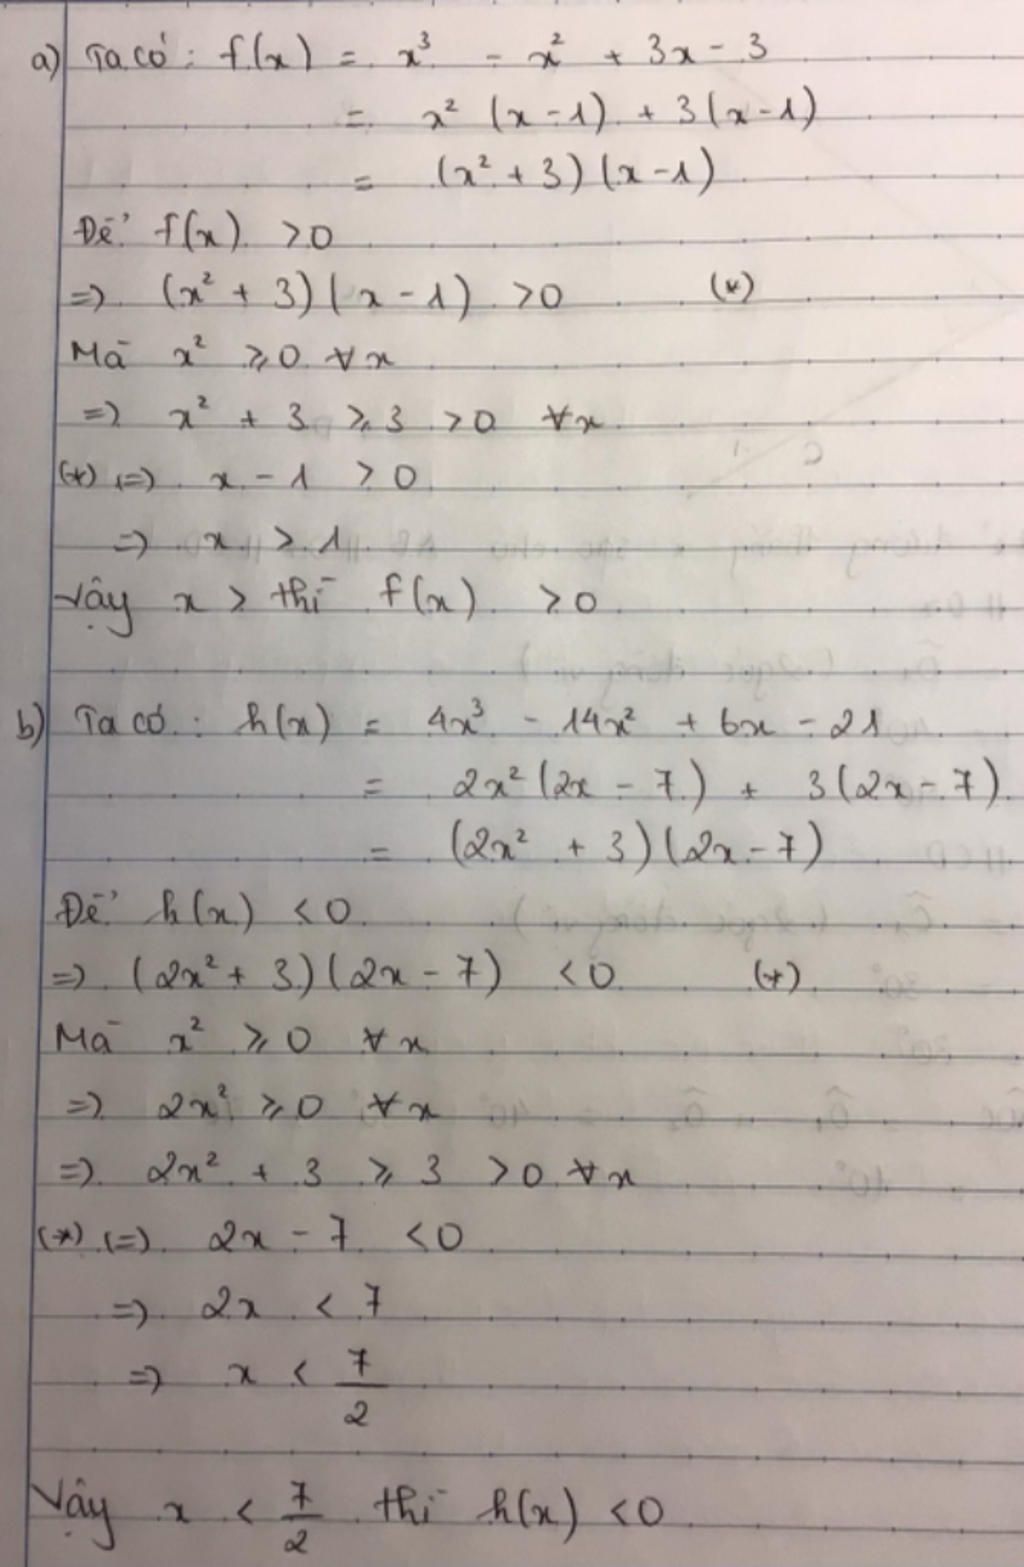 a) Ta có : f(x) = x³ - x² + 3x - 3
= x² (x - 1) + 3(x - 1)
= (x² + 3) (x - 1)
Để f(x) > 0
=> (x² + 3) (x - 1) > 0 (*)
Mà x² ⩾ 0 ∀x
=> x² + 3 ⩾ 3 > 0 ∀x
(*) (=) x - 1 > 0
=> x > 1
Vậy x > thì f(x) > 0
b) Ta có : h(x) = 4x³ - 14x² + 6x - 21
= 2x² (2x - 7) + 3(2x - 7)
= (2x² + 3) (2x - 7)
Để h(x) < 0
=> (2x² + 3) (2x - 7) < 0 (*)
Mà x² ⩾ 0 ∀x
=> 2x² ⩾ 0 ∀x
=> 2x² + 3 ⩾ 3 > 0 ∀x
(*) (=) 2x - 7 < 0
=> 2x < 7
=> x < 7/2
Vậy x < 7/2 thì h(x) < 0